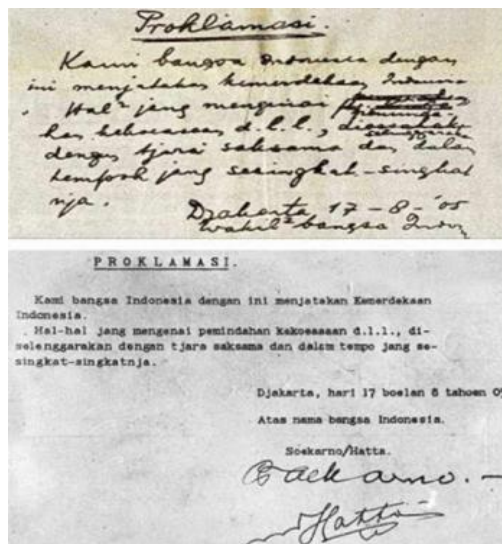 Proklamasi.
Kami bangsa Indonesia dengan
ini menjatakan kemerdekaan
Hal² jang mengenai
kekoeasaan d.l.l.,
dengan tjara saksama dan dalam
tempoh jang sesingkat-singkat
nja.
Djakarta 17 - 8 - '05
Wakil² bangsa
PROKLAMASI.
Kami bangsa Indonesia dengan ini menjatakan Kemerdekaan
Indonesia.
Hal-hal jang mengenai pemindahan kekoeasaan d.l.l., di-
selenggarakan dengan tjara saksama dan dalam tempo jang se-
singkat-singkatnja.
Djakarta, hari 17 boelan 8 tahoen 05
Atas nama bangsa Indonesia.
Soekarno/Hatta.
Soekarno.
Hatta